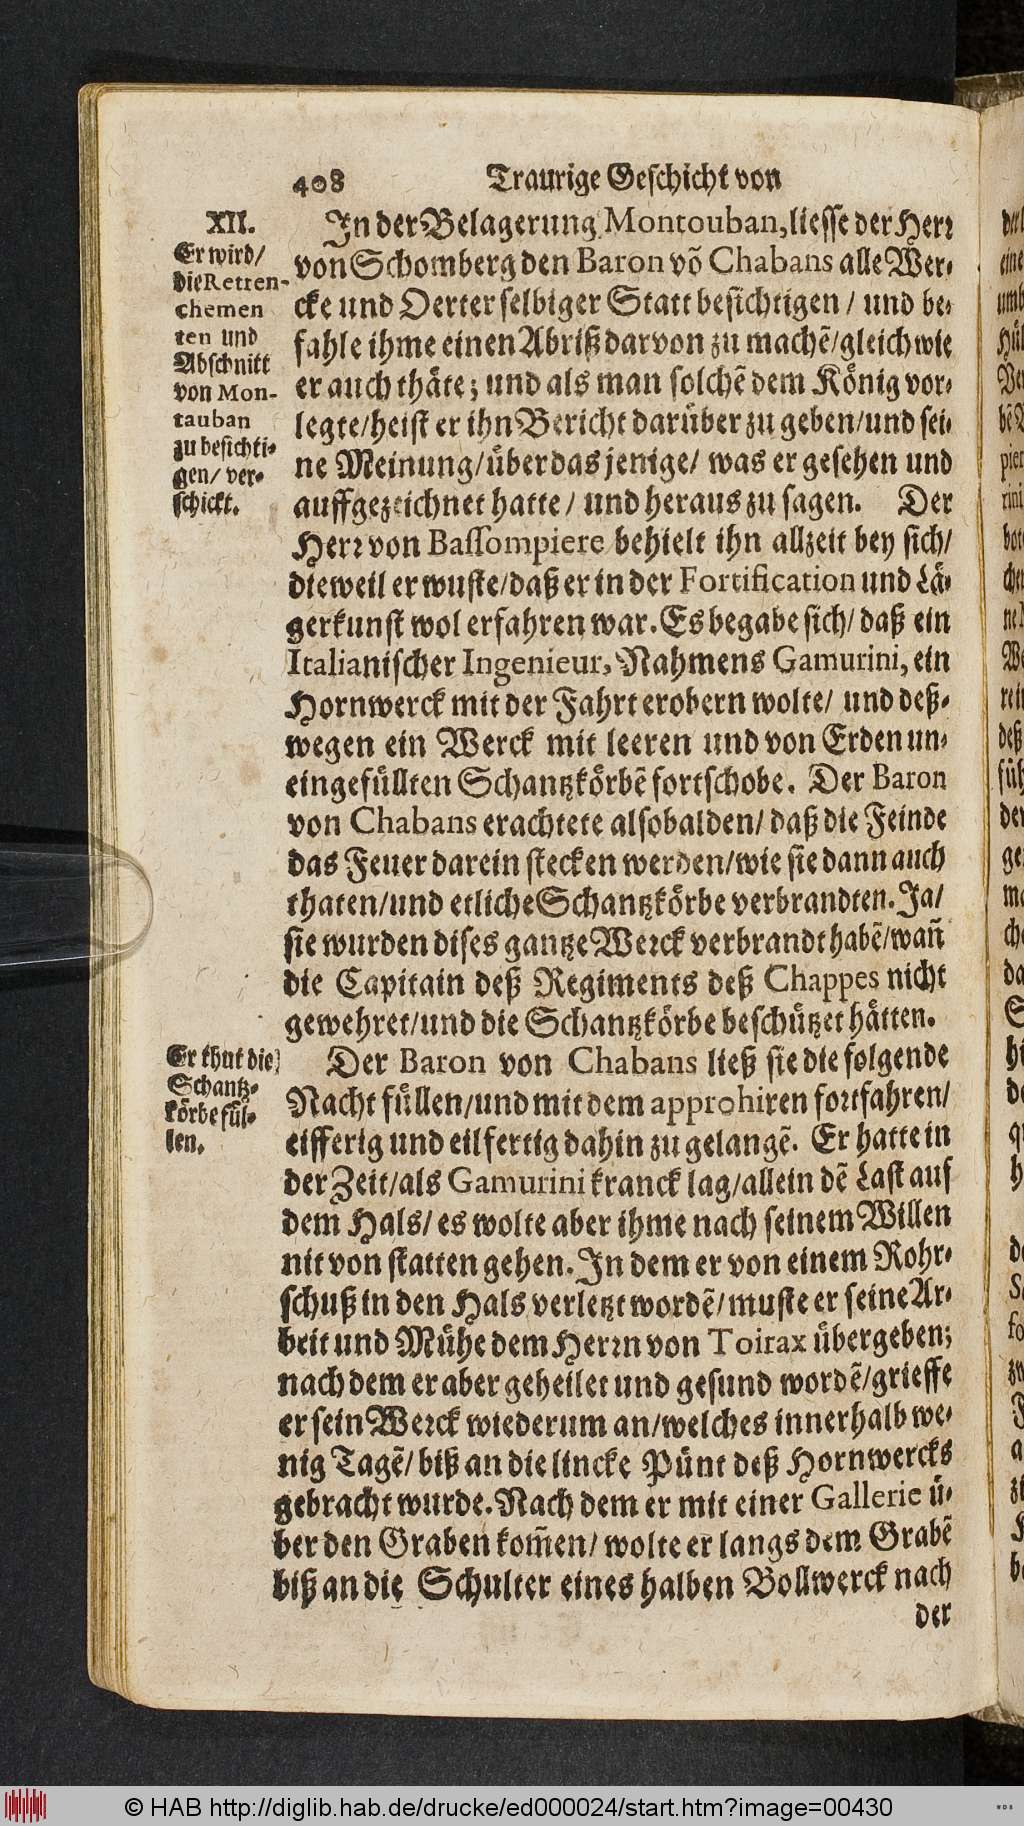 408 Traurige Geschicht von
XII.
Er wird/
die Retten-
chemen
ten und
Abschnitt
von Mon-
tauban
zu besichti-
gen/ ver-
schickt.
In der Belagerung Montouban, liesse der Herr
von Schomberg den Baron võ Chabans alle Wer-
cke und Oerter selbiger Statt besichtigen / und be-
fahle ihme einen Abriß darvon zu machẽ/gleich wie
er auch thäte; und als man solchẽ dem König vor-
legte/heist er ihn Bericht darüber zu geben/und sei-
ne Meinung/über das jenige/ was er gesehen und
auffgezeichnet hatte / und heraus zu sagen. Der
Herr von Bassompiere behielt ihn allzeit bey sich/
dieweil er wuste/daß er in der Fortification und Lä-
gerkunst wol erfahren war. Es begabe sich/ daß ein
Italianischer Ingenieur, Nahmens Gamurini, ein
Hornwerck mit der Fahrt erobern wolte/ und deß-
wegen ein Werck mit leeren und von Erden un-
eingefüllten Schantzkörbẽ fortschobe. Der Baron
von Chabans erachtete alsobalden/ daß die Feinde
das Feuer darein stecken werden/wie sie dann auch
thaten/und etliche Schantzkörbe verbrandten. Ja/
sie wurden dises gantze Werck verbrandt habẽ/wañ
die Capitain deß Regiments deß Chappes nicht
gewehret/und die Schantzkörbe beschützet hätten.
Er thut die
Schantz-
körbe fül-
len.
Der Baron von Chabans ließ sie die folgende
Nacht füllen/und mit dem approhiren fortfahren/
eifferig und eilfertig dahin zu gelangẽ. Er hatte in
der Zeit/als Gamurini kranck lag/allein dẽ Last auf
dem Hals/ es wolte aber ihme nach seinem Willen
nit von statten gehen. In dem er von einem Rohr-
schuß in den Hals verletzt wordẽ/muste er seine Ar-
beit und Mühe dem Herrn von Toirax übergeben;
nach dem er aber geheilet und gesund wordẽ/grieffe
er sein Werck wiederum an/welches innerhalb we-
nig Tagẽ/ biß an die lincke Pünt deß Hornwercks
gebracht wurde. Nach dem er mit einer Gallerie ü-
ber den Graben kom̃en/ wolte er langs dem Grabẽ
biß an die Schulter eines halben Bollwerck nach
der
© HAB http://diglib.hab.de/drucke/ed000024/start.htm?image=00430